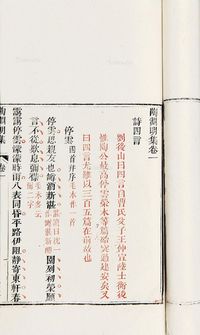 陶淵明集卷一
詩四言
劉後山曰四言自曹氏父子王仲宣陸士衡後
惟陶公最高停雲榮木等篇殆突過建安矣又
曰四言尤難以三百五篇在前故也
停雲
停雲思親友也罇湛新醪園列初榮願
言不從歎息彌襟
靄靄停雲濛濛時雨八表同昏平路伊阻靜寄東軒春
陶淵明集 卷一